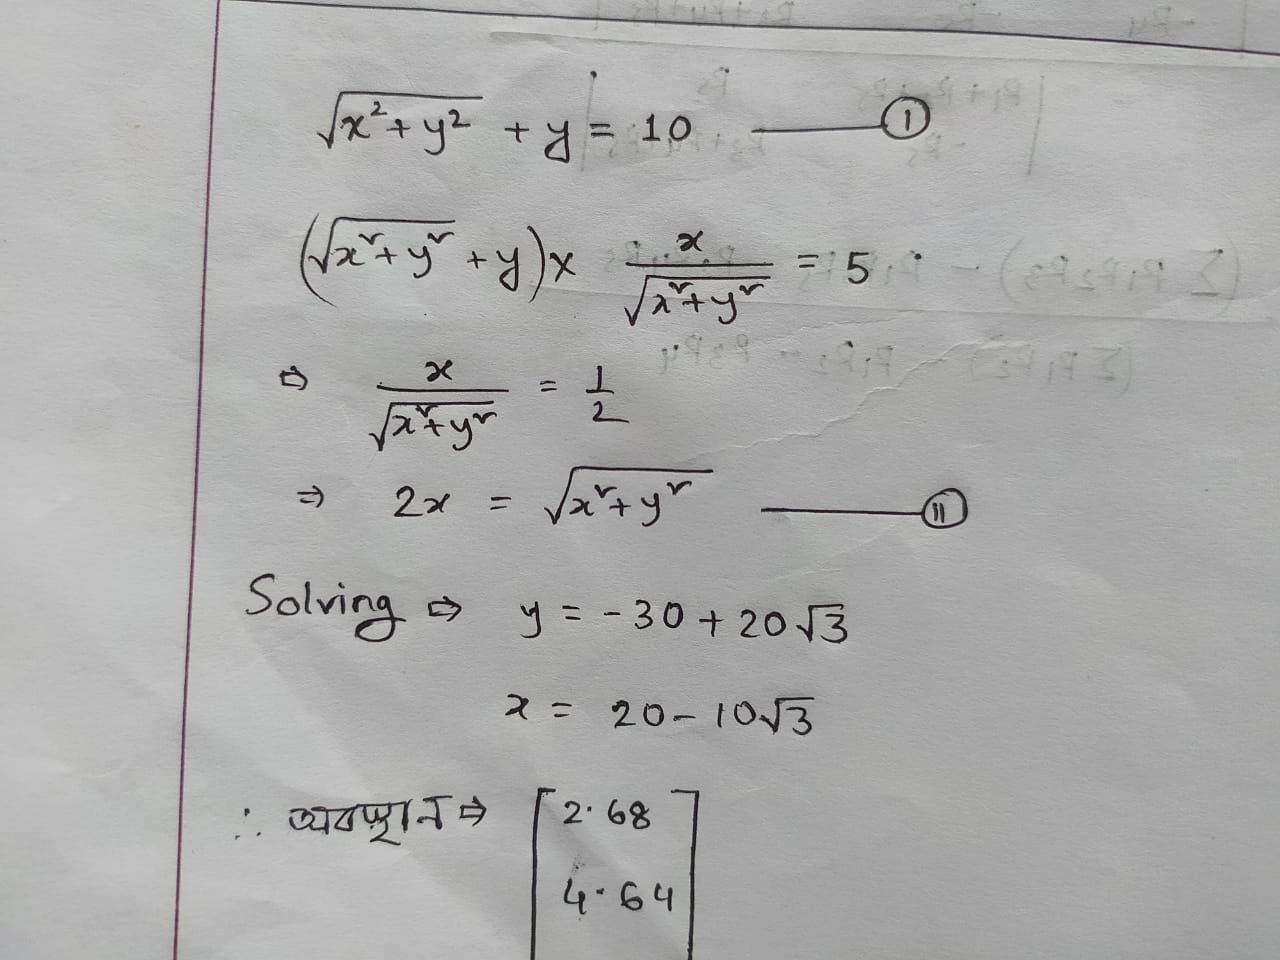 √(x²+y²) + y = 10 ——— (I)
(√(x²+y²) + y) × x/√(x²+y²) = 5
⇒ x/√(x²+y²) = 1/2
⇒ 2x = √(x²+y²) ——— (II)
Solving ⇒ y = -30 + 20√3
x = 20 - 10√3
∴ অবস্থান ⇒ [2.68
4.64]